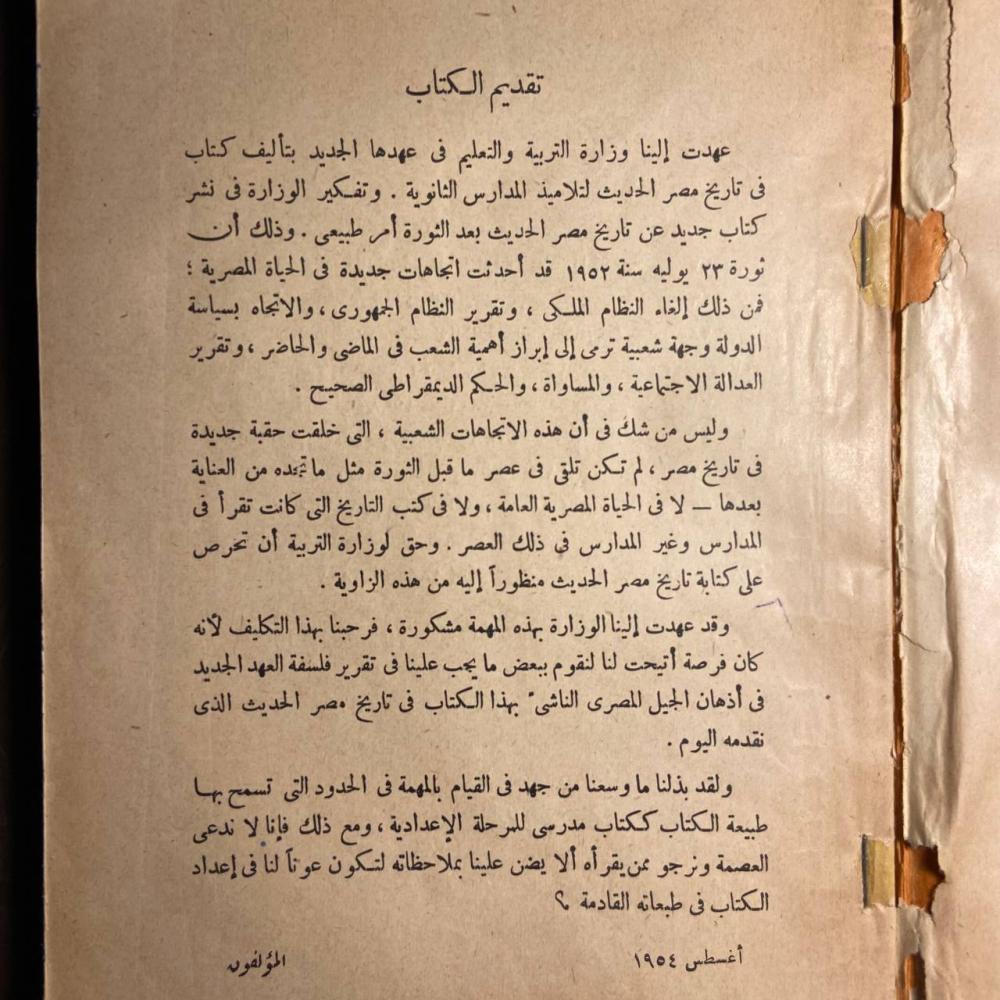 تقديم الكتاب
عهدت إلينا وزارة التربية والتعليم فى عهدها الجديد بتأليف كتاب
فى تاريخ مصر الحديث لتلاميذ المدارس الثانوية . وتفكير الوزارة فى نشر
كتاب جديد عن تاريخ مصر الحديث بعد الثورة أمر طبيعى . وذلك أن
ثورة ٢٣ يوليه سنة ١٩٥٢ قد أحدثت اتجاهات جديدة فى الحياة المصرية ؛
فمن ذلك إلغاء النظام الملكى ، وتقرير النظام الجمهورى ، والاتجاه بسياسة
الدولة وجهة شعبية ترمى إلى إبراز أهمية الشعب فى الماضى والحاضر ، وتقرير
العدالة الاجتماعية ، والمساواة ، والحكم الديمقراطى الصحيح .
وليس من شك فى أن هذه الاتجاهات الشعبية ، التى خلقت حقبة جديدة
فى تاريخ مصر ، لم تكن تلقى فى عصر ما قبل الثورة مثل ما تجده من العناية
بعدها — لا فى الحياة المصرية العامة ، ولا فى كتب التاريخ التى كانت تقرأ فى
المدارس وغير المدارس فى ذلك العصر . وحق لوزارة التربية أن تحرص
على كتابة تاريخ مصر الحديث منظوراً إليه من هذه الزاوية .
وقد عهدت إلينا الوزارة بهذه المهمة مشكورة ، فرحبنا بهذا التكليف لأنه
كان فرصة أتيحت لنا لنقوم ببعض ما يجب علينا فى تقرير فلسفة العهد الجديد
فى أذهان الجيل المصرى الناشىء بهذا الكتاب فى تاريخ مصر الحديث الذى
نقدمه اليوم .
ولقد بذلنا ما وسعنا من جهد فى القيام بالمهمة فى الحدود التى تسمح بها
طبيعة الكتاب ككتاب مدرسى للمرحلة الإعدادية ، ومع ذلك فإنا لا ندعى
العصمة ونرجو ممن يقرأه ألا يضن علينا بملاحظاته لتكون عوناً لنا فى إعداد
الكتاب فى طبعاته القادمة ؟
أغسطس ١٩٥٤ المؤلفون